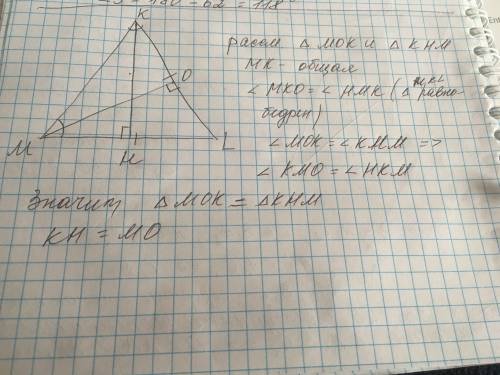 = 180 - 62 = 118°
K
O
M
H
L
расом △ MOK и △ KHM
MK - общая
∠ MKO = ∠ HMK (△ MKL равно-
бедрен)
∠ MOK = ∠ KHM =>
∠ KMO = ∠ HKM
Значит △ MOK = △ KHM
KH = MO